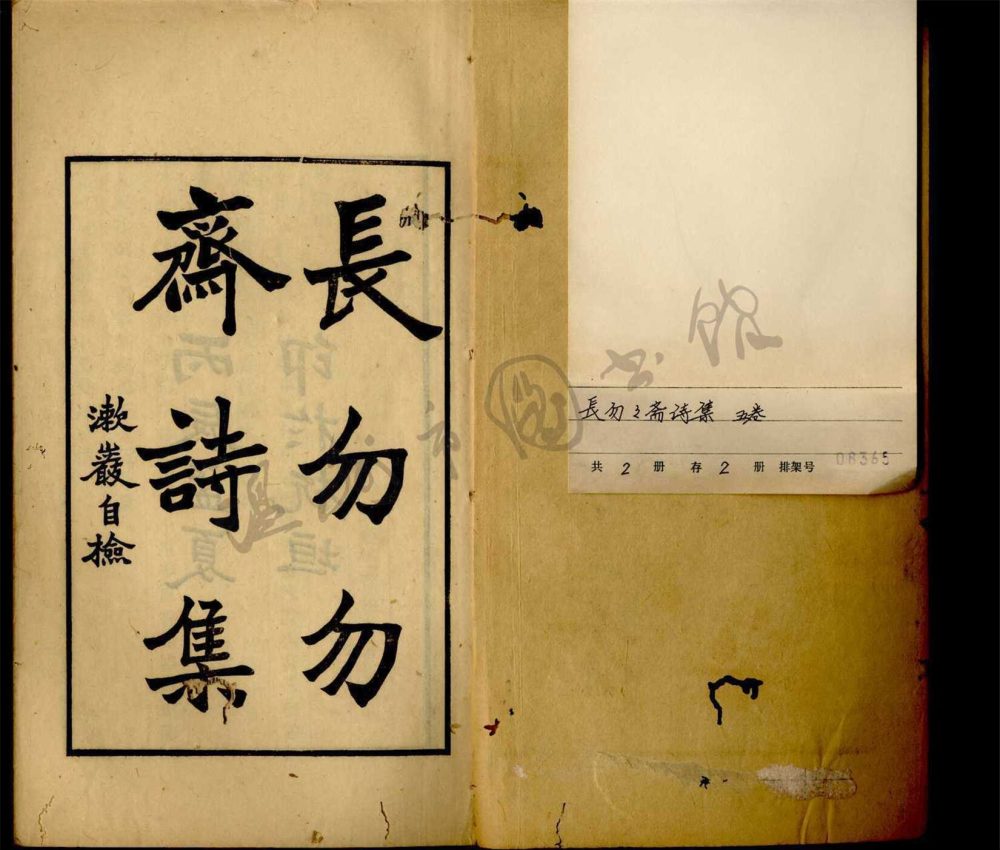 長勿勿
齋詩集
漱巖自檢
長勿々斋诗集 五卷
共 2 册 存 2 册 排架号 08365